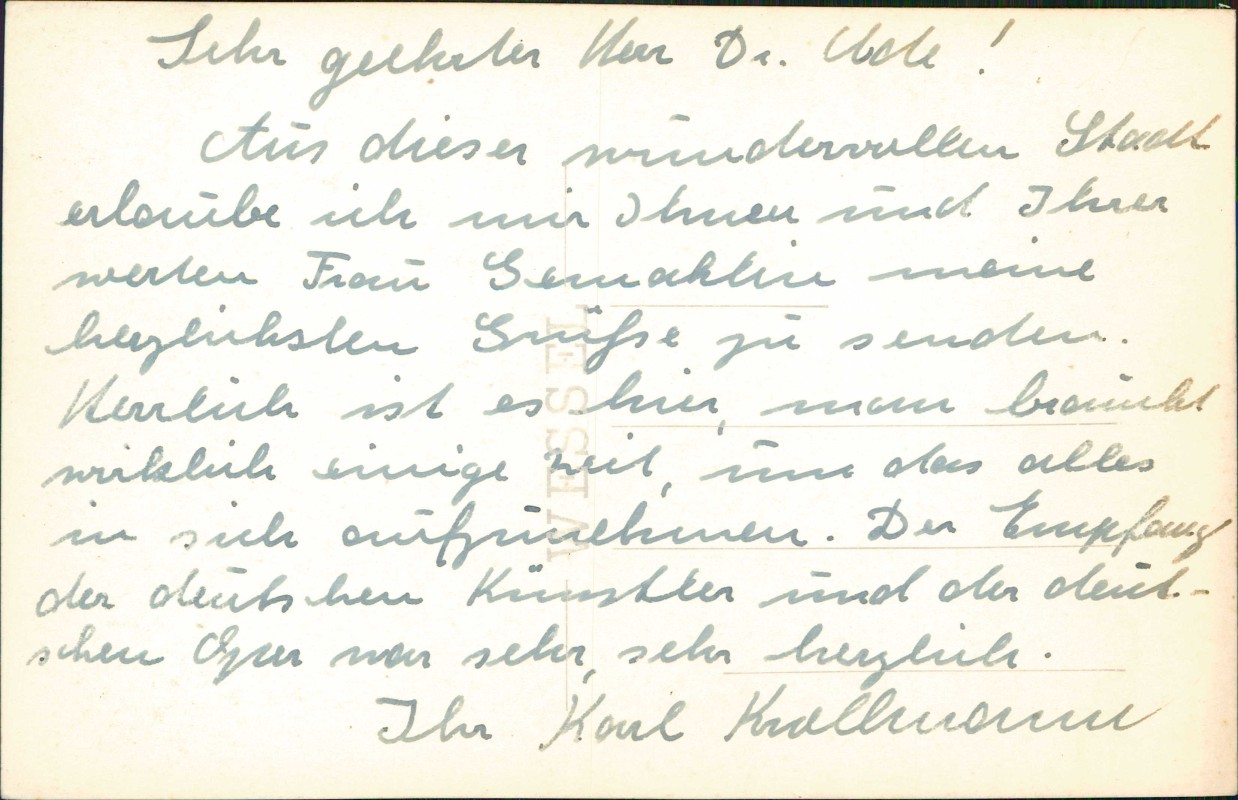 Sehr geehrter Herr Dr. Ude!
Aus dieser wundervollen Stadt
erlaube ich mir Ihnen und Ihrer
werten Frau Gemahlin meine
herzlichsten Grüße zu senden.
Herrlich ist es hier, man braucht
wirklich einige Zeit, um das alles
in sich aufzunehmen. Der Empfang
der deutschen Künstler und der deut-
schen Oper war sehr, sehr herzlich.
Ihr Karl
WESSEL